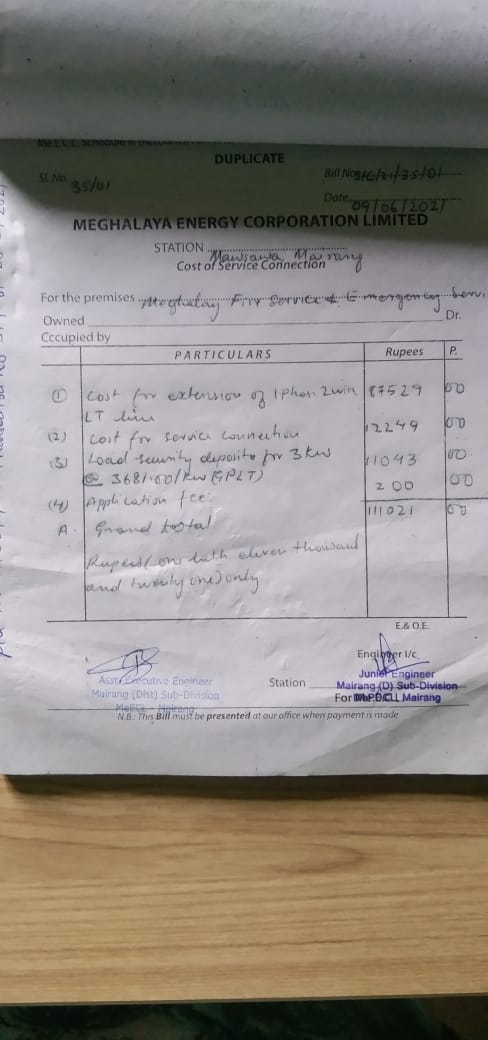 DUPLICATE
Sl. No. 35/01
Bill No
Date 09/06/2021
MEGHALAYA ENERGY CORPORATION LIMITED
STATION Mawsawa Mairang
Cost of Service Connection
For the premises Meghalay Fire Service & Emergency Serv.
Owned Dr.
Occupied by
PARTICULARS Rupees P.
(1) Cost for extension of 1 Phase 2 wire 87529 00
LT line
(2) Cost for service connection 12249 00
(3) Load security deposite for 3 kw 11043 00
@ 3681.00/kw (GPLT)
(4) Application fee 200 00
A. Grand total 111021 00
Rupees (one lakh eleven thousand
and twenty one) only
E.& O.E.
Engineer I/c
Asstt. Executive Engineer
Mairang (Dist) Sub-Division
MeECL, Mairang
Station
Junior Engineer
Mairang (D) Sub-Division
For MePDCL Mairang
N.B.: This Bill must be presented at our office when payment is made